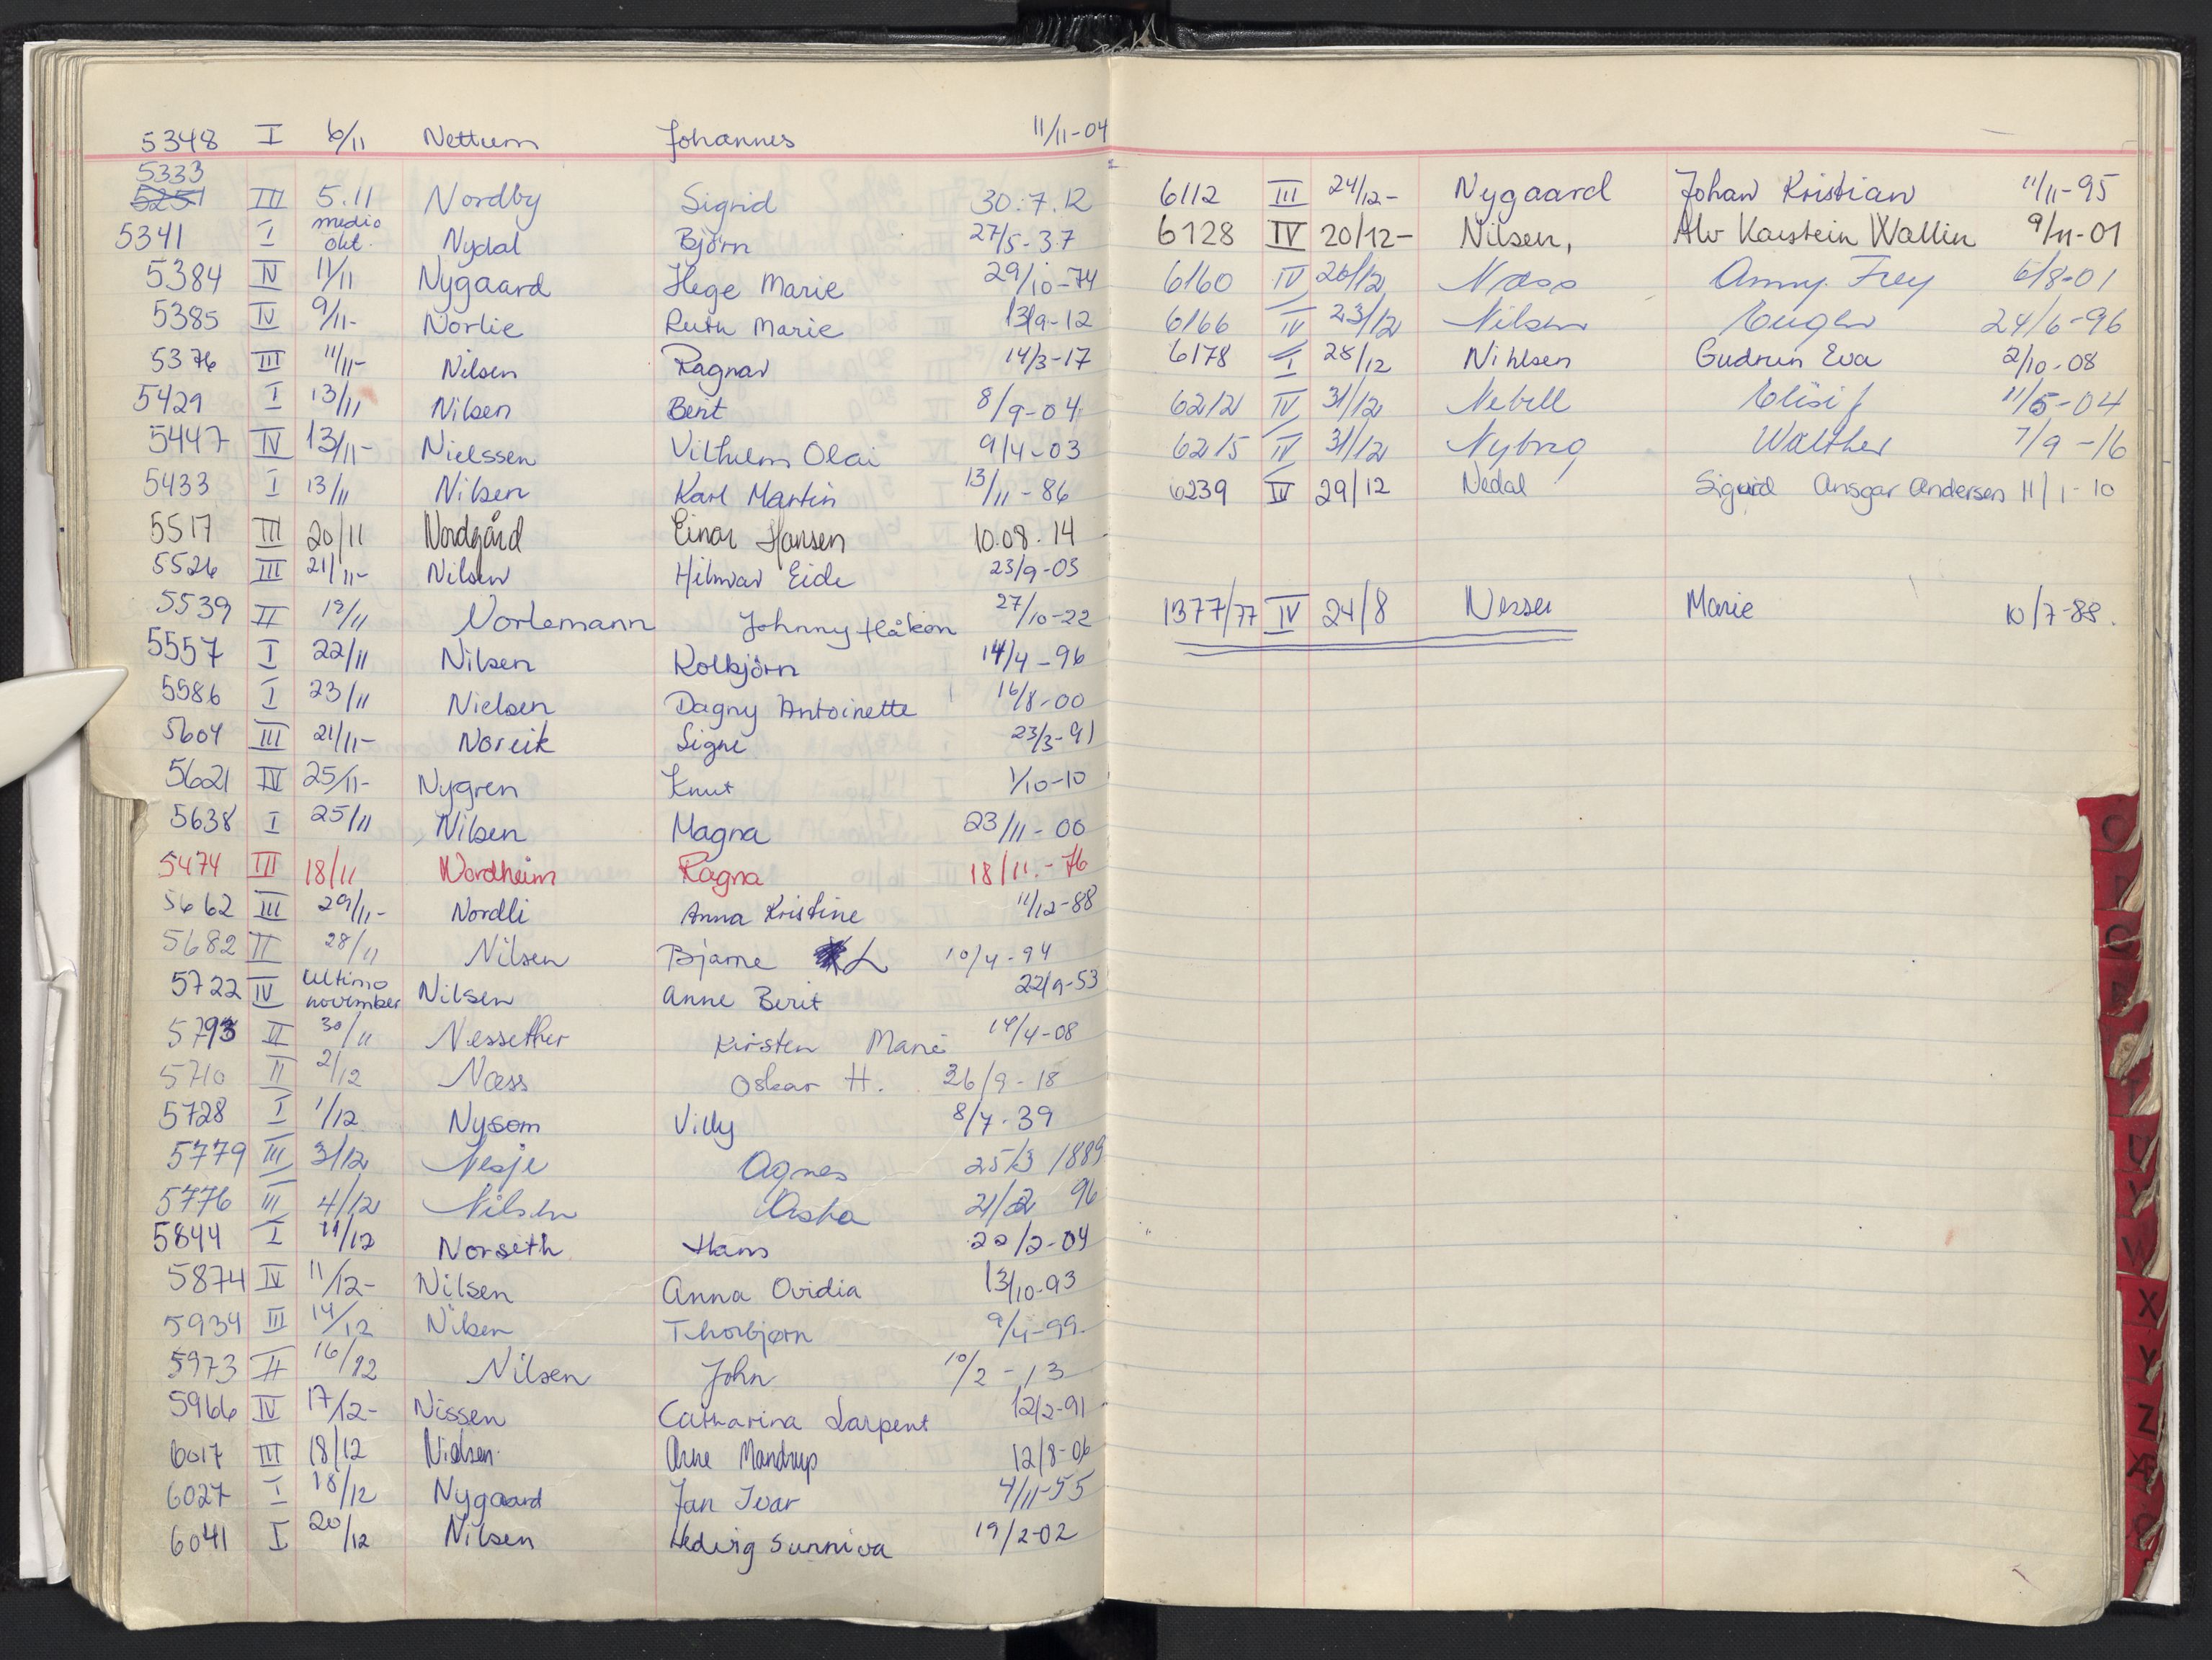 5348 I 6/11 Nettum Johannes 11/11-04
5333
5251 III 5.11 Nordby Sigrid 30.7.12
5341 I medio okt. Nydal Bjørn 27/5-37
5384 IV 11/11 Nygaard Hege Marie 29/10-74
5385 IV 9/11- Norlie Ruth Marie 13/9-12
5376 III 11/11- Nilsen Ragnar 14/3-17
5429 I 13/11 Nilsen Berit 8/9-04
5447 IV 13/11- Nielssen Vilhelm Olai 9/4-03
5433 I 13/11 Nilsen Karl Martin 13/11-86
5517 III 20/11 Nordgård Einar Hansen 10.08.14
5526 III 21/11- Nilsen Hilmar Eide 23/9-03
5539 II 19/11 Nortemann Johnny Håkon 27/10-22
5557 I 22/11 Nilsen Kolbjörn 14/4-96
5586 I 23/11 Nielsen Dagny Antoinette 16/8-00
5604 III 21/11- Noreik Signe 23/3-91
5621 IV 25/11- Nygren Knut 1/10-10
5638 I 25/11 Nilsen Magna 23/11-00
5474 III 18/11 Nordheim Ragna 18/11.-76
5662 III 29/11- Nordli Anna Kristine 11/12-88
5682 II 28/11 Nilsen Bjarne L 10/4-94
5722 IV ultimo november Nilsen Anne Berit 22/9-53
5793 II 30/11 Nessether Kirsten Marie 14/4-08
5710 II 2/12 Næss Oskar H. 26/9-18
5728 I 1/12 Nysom Villy 8/7-39
5779 III 3/12 Nesje Agnes 25/3 1889
5776 III 4/12 Nilsen Aasta 21/2 96
5844 I 11/12 Norseth Hans 20/2-04
5874 IV 11/12- Nilsen Anna Ovidia 13/10-93
5934 III 14/12 Nilsen Thorbjørn 9/4-99.
5973 II 16/12 Nilsen John 10/2-13
5966 IV 17/12- Nissen Catharina Larpent 12/2-91
6017 III 18/12 Nielsen Arne Mandrup 12/8-06
6027 I 18/12 Nygaard Jan Ivar 4/11-55
6041 I 20/12 Nilsen Hedvig Sunniva 19/2-02
6112 III 24/12- Nygaard Johan Kristian 11/11-95
6128 IV 20/12- Nilsen, Alv Karstein Wallin 9/11-01
6160 IV 26/12 Næss Anny Frey 6/8-01
6166 IV 23/12 Nilsen 24/6-96
6178 I 28/12 Nihlsen Gudrun Eva 2/10-08
6212 IV 31/12 Nebell Elisif 11/5-04
6215 IV 31/12 Nyborg Walther 7/9-16
6239 IV 29/12 Nedal Sigurd Ansgar Andersen 11/1-10
1377/77 IV 24/8 Nesse Marie 10/7-88.
O
P
Q
U
V
W
X
Y
Z
Æ
Ø